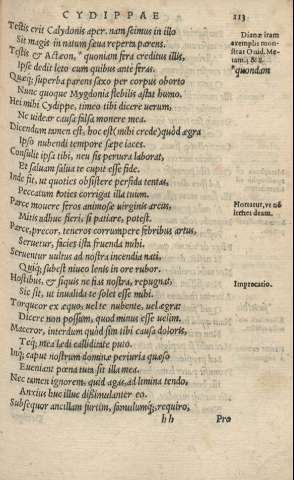 CYDIPPAE
113
Testis erit Calydonis aper. nam scimus in illo
Sit magis in natum sæua reperta parens.
Testis & Actæon, " quoniam fera creditus illis,
Ipse dedit leto cum quibus ante feras.
Quæq; superba parens saxo per corpus oborto
Nunc quoque Mygdonia flebilis astat humo.
Hei mihi Cydippe, timeo tibi dicere uerum,
Ne uidear causa falsa monere mea.
Dicendum tamen est, hoc est (mihi crede) quòd ægra
Ipso nubendi tempore sæpe iaces.
Consulit ipsa tibi, neu sis periura laborat,
Et saluam salua te cupit esse fide.
Inde fit, ut quoties obsistere perfida tentas,
Peccatum toties corrigat illa tuum.
Parce mouere feros animosæ uirginis arcus,
Mitis adhuc fieri, si patiare, potest.
Parce, precor, teneros corrumpere febribus artus,
Seruetur, facies ista fruenda mihi.
Seruentur uultus ad nostra incendia nati,
Quiq; subest niueo lenis in ore rubor.
Hostibus, & siquis ne fias nostra, repugnat,
Sic sit, ut inualida te solet esse mihi.
Torqueor ex æquo, uel te nubente, uel ægra:
Dicere non possum, quod minus esse uelim.
Maceror, interdum quòd sim tibi causa doloris,
Teq; mea lædi calliditate puto.
Inq; caput nostrum dominæ periuria quæso
Eueniant pœna tuta sit illa mea.
Nec tamen ignorem, quid agas, ad limina tendo,
Anxius huc illuc dissimulanter eo.
Subsequor ancillam furtim, famulumq; requiro,
hh
Pro
Dianæ iram
exemplis mon-
strat Ouid. Me-
tam. 3 & 8.
"quondam
Hortatur, ve nõ
Imprecatio.